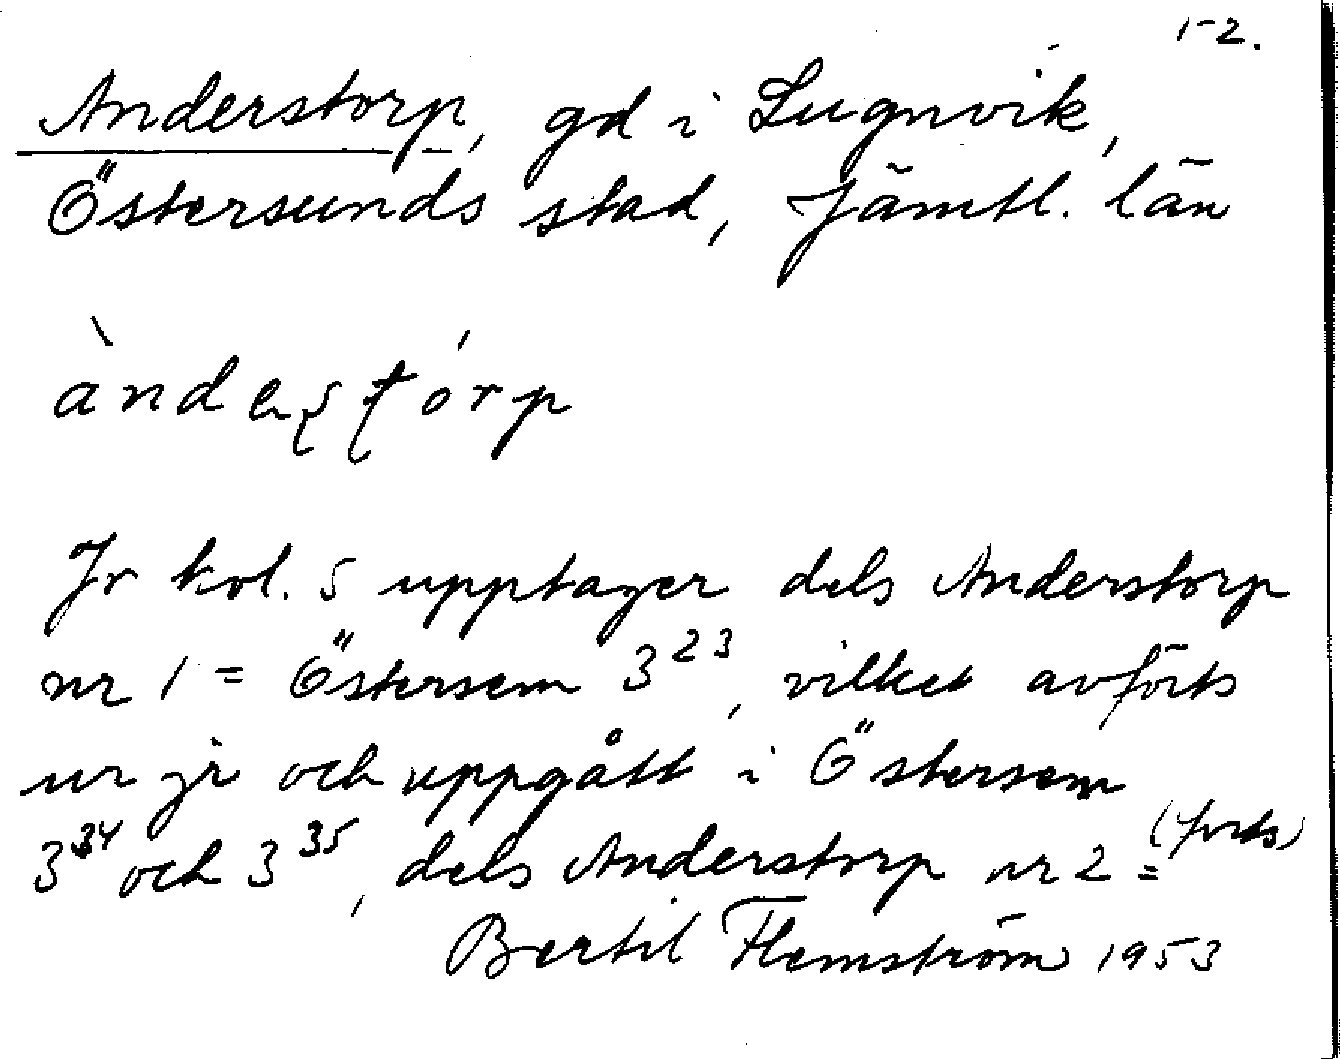 1-2.
Anderstorp, gd i Lugnvik,
Östersunds stad, Jämtl. län
àndeʂʈórp
Jr kol. 5 upptager dels Anderstorp
nr 1 = Östersem 3²³, vilket avförts
ur jr och uppgått i Östersem
3³⁴ och 3³⁵, dels Anderstorp nr 2 = (forts)
Bertil Flemström 1953